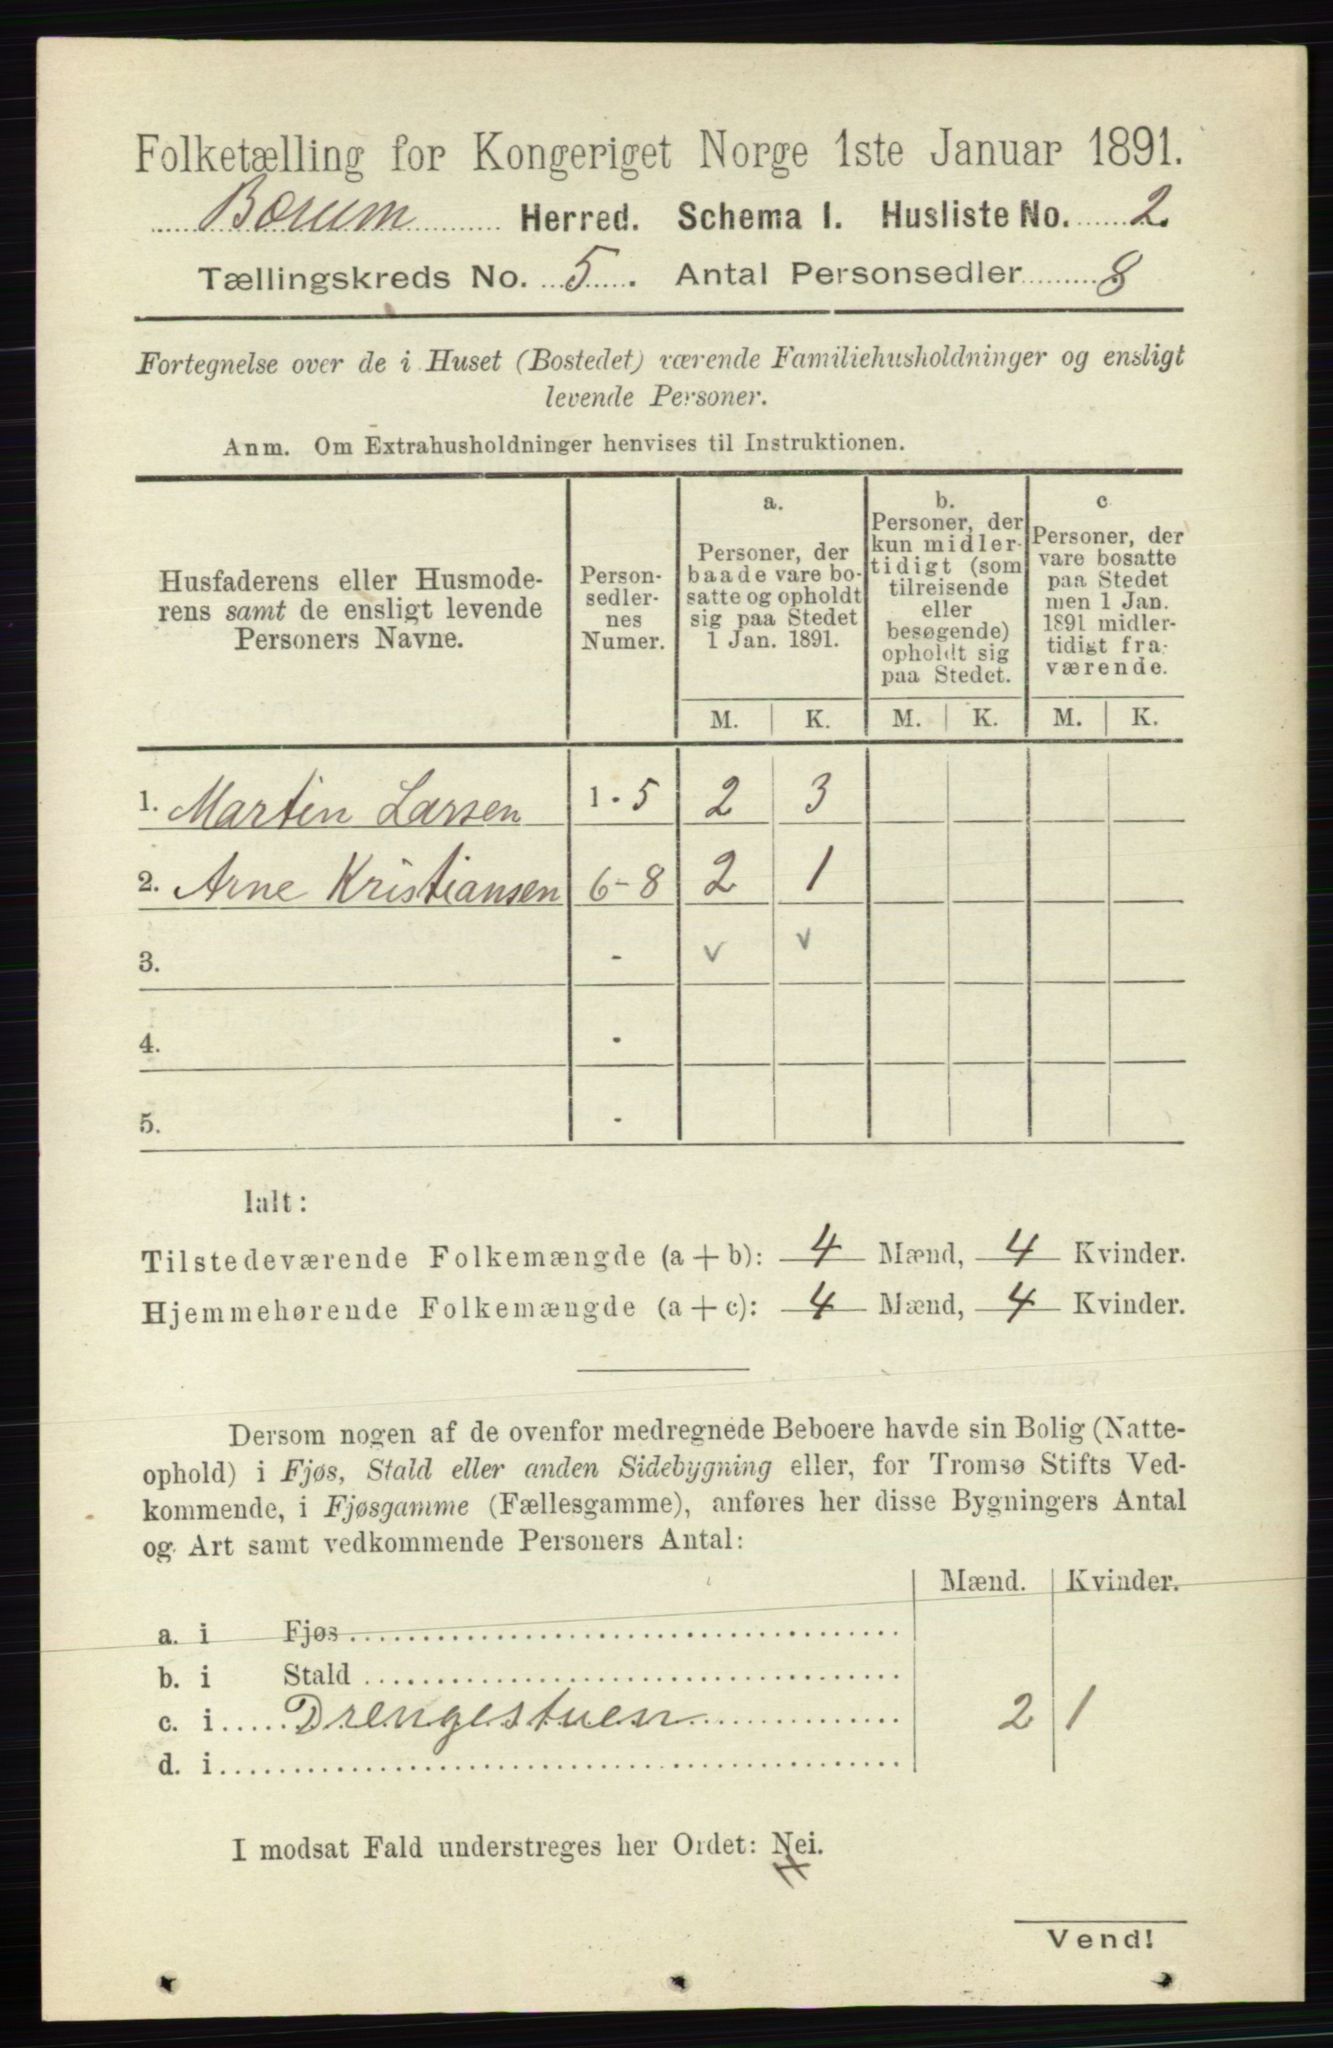 Folketælling for Kongeriget Norge 1ste Januar 1891.
Bærum Herred. Schema I. Husliste No. 2
Tællingskreds No. 5. Antal Personsedler 8
Fortegnelse over de i Huset (Bostedet) værende Familiehusholdninger og ensligt
levende Personer.
Anm. Om Extrahusholdninger henvises til Instruktionen.
Husfaderens eller Husmode-
rens samt de ensligt levende
Personers Navne.
Person-
sedler-
nes
Numer.
a.
Personer, der
baade vare bo-
satte og opholdt
sig paa Stedet
1 Jan. 1891.
b.
Personer, der
kun midler-
tidigt (som
tilreisende
eller
besøgende)
opholdt sig
paa Stedet.
c
Personer, der
vare bosatte
paa Stedet
men 1 Jan.
1891 midler-
tidigt fra-
værende.
M. K. M. K. M. K.
1. Martin Larsen 1-5 2 3
2. Arne Kristiansen 6-8 2 1
3. - v v
4. -
5. -
Ialt:
Tilstedeværende Folkemængde (a + b): 4 Mænd, 4 Kvinder.
Hjemmehørende Folkemængde (a + c): 4 Mænd, 4 Kvinder.
Dersom nogen af de ovenfor medregnede Beboere havde sin Bolig (Natte-
ophold) i Fjøs, Stald eller anden Sidebygning eller, for Tromsø Stifts Ved-
kommende, i Fjøsgamme (Fællesgamme), anføres her disse Bygningers Antal
og Art samt vedkommende Personers Antal:
Mænd. Kvinder.
a. i Fjøs
b. i Stald
c. i Drengestuen 2 1
d. i
I modsat Fald understreges her Ordet: Nei.
Vend!